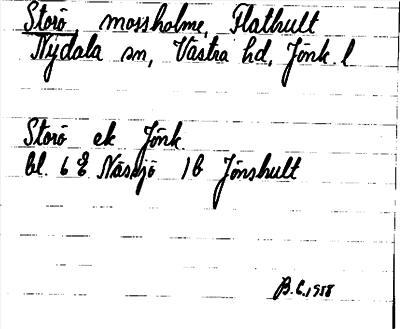 Storö, mossholme, Flathult
Nydala sn, Västra hd, Jönk. l
Storö ek Jönk.
bl. 6 E Nässjö 1b Jönshult
B.E. 1958